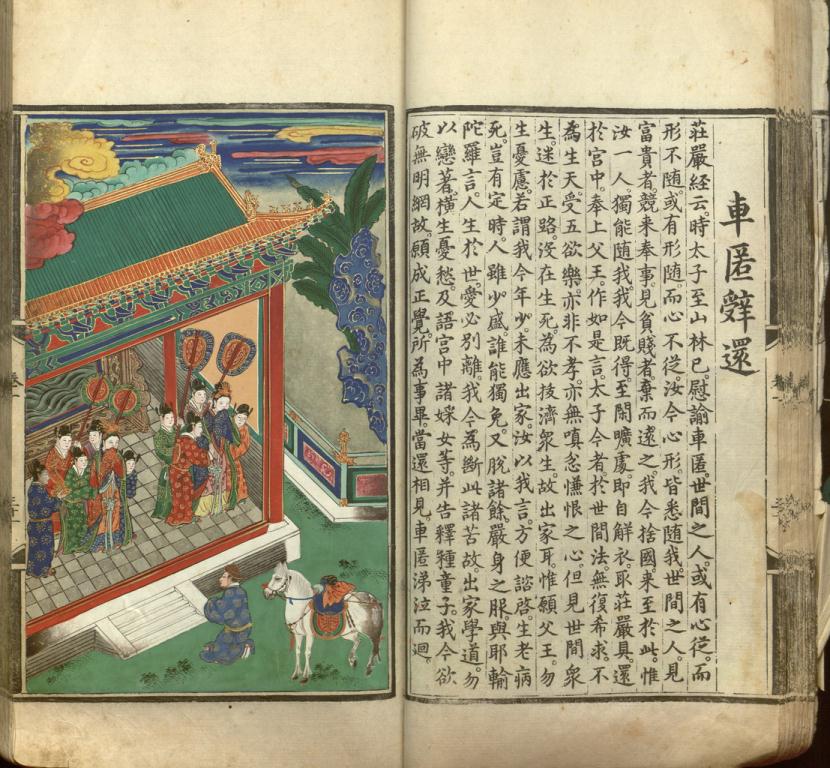 車匿辭還
莊嚴経云。時太子至山林已。慰諭車匿。世間之人。或有心従。而
形不随。或有形随。而心不従。汝今心形。皆悉随我。世間之人。見
富貴者。競来奉事。見貧賤者。棄而逺之。我今捨國。来至於此。惟
汝一人。獨能随我。我今既得。至閒曠處。即自解衣。取莊嚴具。還
於宮中。奉上父王。作如是言。太子今者。於世間法。無復希求。不
為生天。受五欲樂。亦非不孝。亦無嗔忿慊恨之心。但見世間衆
生。迷於正路。沒在生死。為欲拔濟衆生。故出家耳。惟願父王。勿
生憂慮。若謂我今年少。未應出家。汝以我言。方便諮啓。生老病
死。豈有定時。人雖少盛。誰能獨免。又脫諸餘。嚴身之服。與耶輸
陀羅言。人生於世。愛必別離。我今為斷此諸苦故。出家學道。勿
以戀著。橫生憂愁。及語宮中諸婇女等。并告釋種童子。我今欲
破無明網故。願成正覺。所為事畢。當還相見。車匿涕泣而迴。